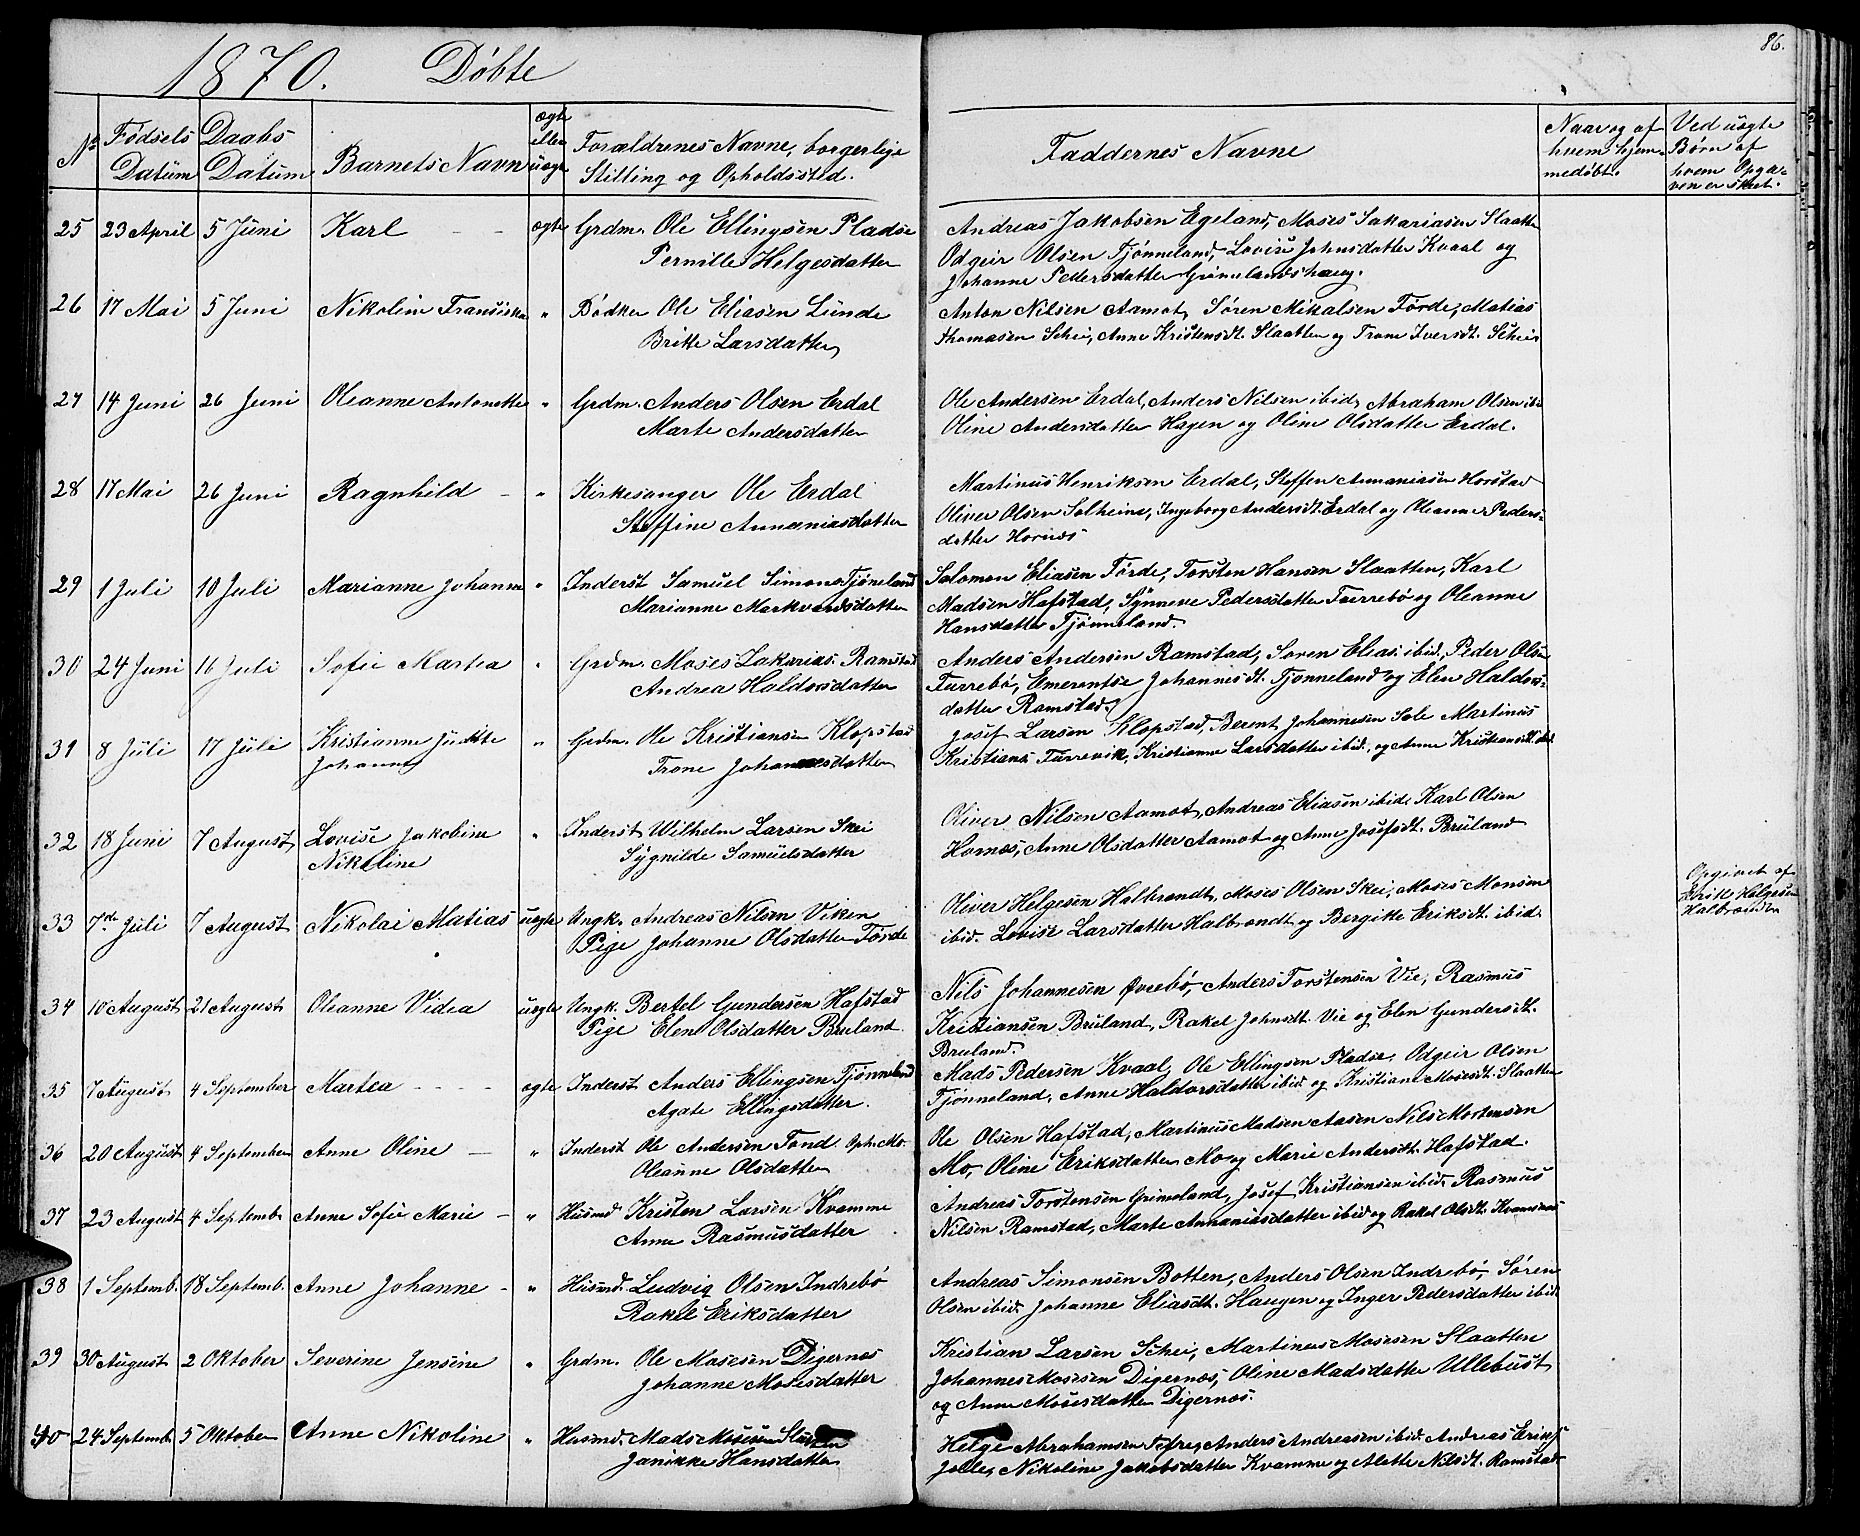 1870. Døbte
86.
No Fødsels Datum Daabs Datum Barnets Navn ægte eller uægte Forældrenes Navne, borgerlige Stilling og Opholdssted. Faddernes Navne Naar og af hvem hjemmedøbt. Ved uægte Børn af hvem Opgaven er skeet.
25 23 April 5 Juni Karl - - ægte Grdm. Ole Ellingsen Pladse Andreas Jakobsen Egeland, Moses Sakariasen Slaatte
Pernille Helgesdatter Odgeir Olsen Tjønneland, Lovise Johnsdatter Kvaal og
Johanne Pedersdatter Grimelandshaug.
26 17 Mai 5 Juni Nikoline Fransiska " Bødker Ole Eliasen Lunde Anton Nilsen Aamot, Søren Mikalsen Førde, Matias
Britte Larsdatter Thomasen Schei, Anne Kristensdt. Slaatten og Trone Iversdt. Schei
27 14 Juni 26 Juni Oleanne Antonette " Grdm. Anders Olsen Erdal Ole Andersen Erdal, Anders Nilsen ibid, Abraham Olsen ibi
Marte Andersdatter Oline Andersdatter Hagen og Oline Olsdatter Erdal.
28 17 Mai 26 Juni Ragnhild - " Kirkesanger Ole Erdal Martinus Henriksen Erdal, Steffen Annaniasen Horstad
Steffine Annaniasdatter Oliver Olsen Solheim, Ingeborg Andersdt. Erdal og Oleanne Peders-
datter Hornæs
29 1 Juli 10 Juli Marianne Johanne " Inderst Samuel Simons. Tjøneland Salomon Eliasen Førde, Torsten Hansen Slaatten, Karl
Marianne Markvardsdatter Madsen Hafstad, Synneve Pedersdatter Furrebø og Oleanne
Hansdatter Tjønneland.
30 24 Juni 16 Juli Sofie Martea " Grdm. Moses Zakarias. Ramstad Anders Andersen Ramstad, Søren Elias. ibid. Peder Olsn
Andrea Haldorsdatter Furrebø, Emerentse Johannesdt. Tjønneland og Elen Haldors-
datter Ramstad.
31 8 Juli 17 Juli Kristianne Judtte Grdm. Ole Kristiansen Klopstad Josef Larsen Klopstad, Berent Johannesen Sole Martinus
Johanne " Trone Johannesdatter Kristians. Furevik, Kristianne Larsdatter ibid., og Anne Kristiansdt. ibid
32 18 Juni 7 August Lovise Jakobine " Inderst Wilhelm Larsen Skei Oliver Nilsen Aamot, Andreas Eliasen ibid, Karl Olsen
Nikoline Sygnilde Samuelsdatter Hornæs, Anne Olsdatter Aamot og Anne Josefsdt. Bruland
33 7de Juli 7 August Nikolai Matias uægte Ungk. Andreas Nilsen Viken Oliver Helgesen Halbrendt, Moses Olsen Skei, Moses Monsen Opgivet af
Pige Johanne Olsdatter Førde ibid. Lovise Larsdatter Halbrendt og Bergitte Eriksdt. ibid. Helgesen
34 10 August 21 August Oleanne Videa uægte Ungk. Bertel Gundersen Hafstad Nils Johannesen Øvrebø, Anders Torstensen Vie, Rasmus
Pige Elen Olsdatter Bruland. Kristiansen Bruland, Rakel Johnsdt. Vie og Elen Gundersdt.
Bruland.
35 7 August 4 September Martea - - - ægte Inderst Anders Ellingsen Tjønneland Mads Pedersen Kvaal, Ole Ellingsen Pladse, Odgeir Olsen
Agate Ellingsdatter. Tjønneland, Anne Haldorsdatter ibid og Kristiane Mosesdt. Slaatten
36 20 August 4 September Anne Oline - " Inderst Ole Andersen Fond Oph. Mo. Ole Olsen Hafstad, Martinus Madsen Aasen Nils Mortensen
Oleanne Olsdatter Mo, Oline Eriksdatter Mo og Marie Andersdt. Hafstad.
37 23 August 4 Septemb. Anne Sofie Marie - " Husmd. Kristen Larsen Kvamme Andreas Torstensen Grimeland, Josef Kristiansen ibid. Rasmus
Anne Rasmusdatter Nilsen Ramstad, Marte Annaniasdatter ibid og Rakel Olsdt. Kvamsnes
38 1 Septemb. 18 Septemb. Anne Johanne - " Husmd. Ludvig Olsen Indrebø Andreas Simonsen Botten, Anders Olsen Indrebø, Søren
Rakel Eriksdatter Olsen ibid. Johanne Eliasdt. Haugen og Inger Pedersdatter ibid
39 30 August 2 Oktober Severine Jensine " Grdm. Ole Mosesen Digernes Kristian Larsen Schei, Martinus Mosesen Slaatten
Johanne Mosesdatter Johannes Mosesen Digernæs, Oline Madsdatter Ullebust
og Anne Mosesdatter Digernæs.
40 24 Septemb 5 Oktober Anne Nikoline " Husmd. Mads Mosesen Slaatten Helge Abrahamsen Anders Andreasen ibid. Andreas Eriks.
Janikke Hansdatter Nikoline Jakobsdatter Kvamme og Alette Nilsdt. Ramstad